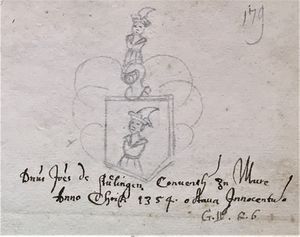 179
Dnus Joes de Hulingen Conventh Zu Mure
Anno Christi 1354. octaua Innocentum
G. W. R. 6